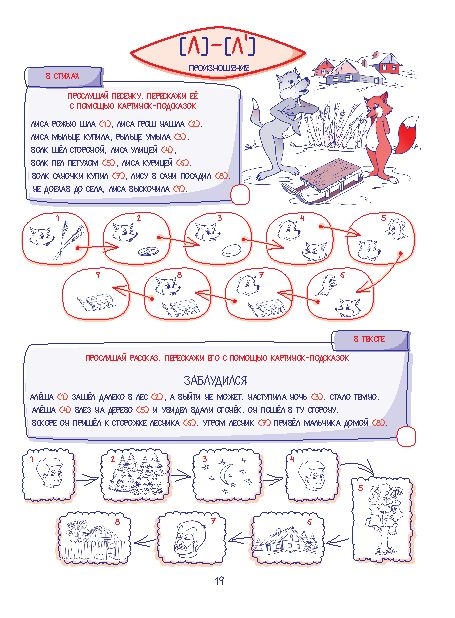 [Л]-[Л']
ПРОИЗНОШЕНИЕ
В СТИХАХ
ПРОСЛУШАЙ ПЕСЕНКУ. ПЕРЕСКАЖИ ЕЁ
С ПОМОЩЬЮ КАРТИНОК-ПОДСКАЗОК
ЛИСА РОЖЬЮ ШЛА (1), ЛИСА ГРОШ НАШЛА (2).
ЛИСА МЫЛЬЦЕ КУПИЛА, РЫЛЬЦЕ УМЫЛА (3).
ВОЛК ШЁЛ СТОРОНОЙ, ЛИСА УЛИЦЕЙ (4),
ВОЛК ПЕЛ ПЕТУХОМ (5), ЛИСА КУРИЦЕЙ (6).
ВОЛК САНОЧКИ КУПИЛ (7), ЛИСУ В САНИ ПОСАДИЛ (8).
НЕ ДОЕХАВ ДО СЕЛА, ЛИСА ВЫСКОЧИЛА (9).
1 2 3 4 5
9 8 7 6
В ТЕКСТЕ
ПРОСЛУШАЙ РАССКАЗ. ПЕРЕСКАЖИ ЕГО С ПОМОЩЬЮ КАРТИНОК-ПОДСКАЗОК
ЗАБЛУДИЛСЯ
АЛЁША (1) ЗАШЁЛ ДАЛЕКО В ЛЕС (2), А ВЫЙТИ НЕ МОЖЕТ. НАСТУПИЛА НОЧЬ (3). СТАЛО ТЕМНО.
АЛЁША (4) ВЛЕЗ НА ДЕРЕВО (5) И УВИДЕЛ ВДАЛИ ОГОНЁК. ОН ПОШЁЛ В ТУ СТОРОНУ.
ВСКОРЕ ОН ПРИШЁЛ К СТОРОЖКЕ ЛЕСНИКА (6). УТРОМ ЛЕСНИК (7) ПРИВЁЛ МАЛЬЧИКА ДОМОЙ (8).
1 2 3 4 5
8 7 6
19